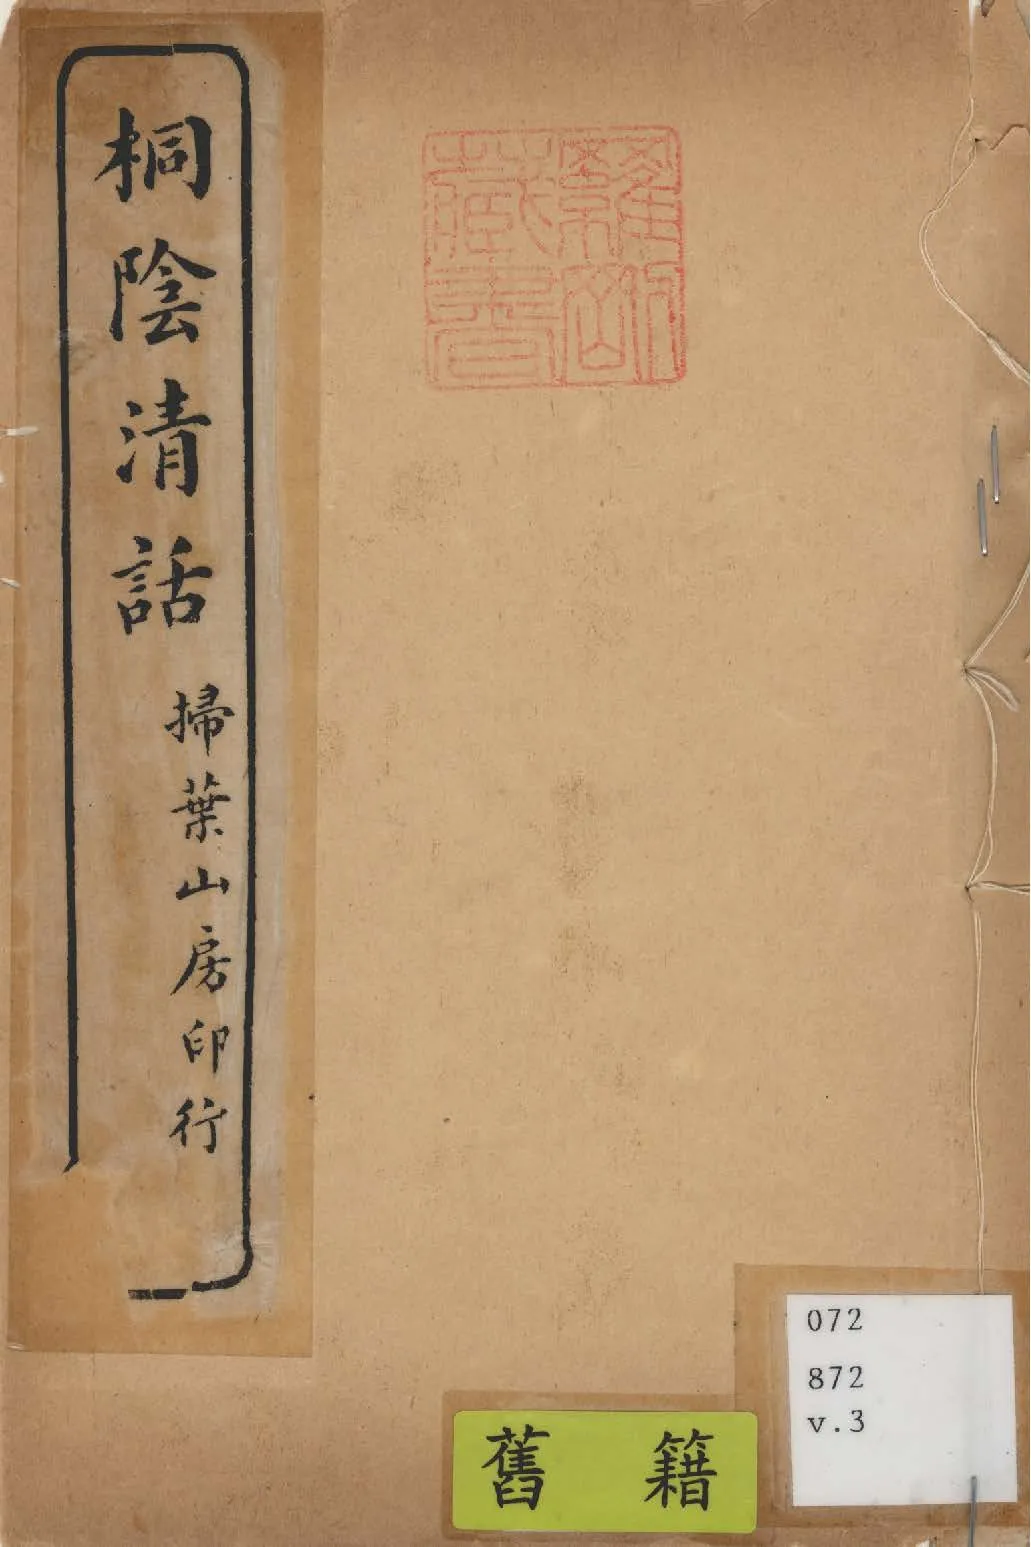 桐陰清話
掃葉山房印行
羅剛
藏書
072
872
v.3
舊籍